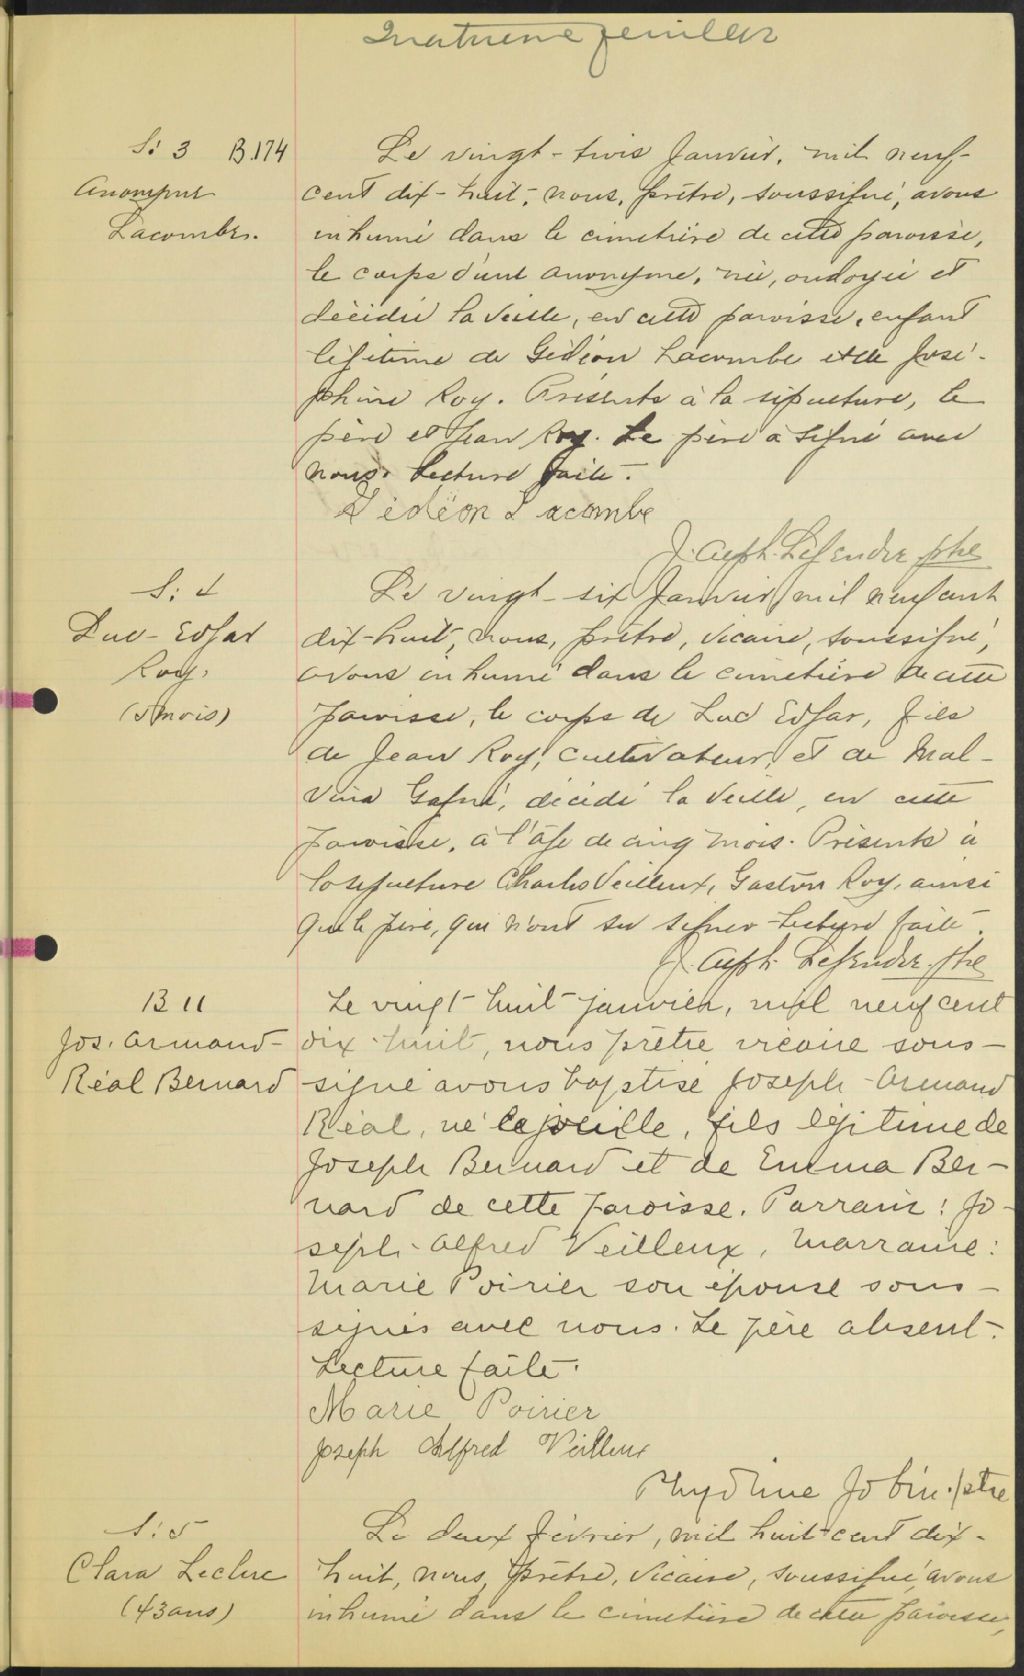 Quatrième feuillet
S: 3 B.174
Anonyme
Lacombe.
Le vingt-trois Janvier, mil neuf-
cent dix-huit, nous, prêtre, soussigné, avons
inhumé dans le cimetière de cette paroisse,
le corps d'un anonyme, né, ondoyé et
décédé la veille, en cette paroisse, enfant
légitime de Gédéon Lacombe et de José-
phine Roy. Présents à la sépulture, le
père et Jean Roy. Le père a signé avec
nous. Lecture faite.
Gédéon Lacombe
J. Alph. Légender ptre
S: 4
Luc-Edgar
Roy.
(5 mois)
Le vingt-six Janvier mil neuf cent
dix-huit, nous, prêtre, vicaire, soussigné,
avons inhumé dans le cimetière de cette
paroisse, le corps de Luc Edgar, fils
de Jean Roy, cultivateur, et de Mal-
vina Gagné, décédé la veille, en cette
paroisse, à l'âge de cinq mois. Présents à
la sépulture Charles Veilleux, Gaston Roy, ainsi
que le père, qui n'ont su signer. Lecture faite.
J. Alph. Légender ptre
B 11
Jos. Armand-
Réal Bernard
Le vingt-huit janvier, mil neuf cent
dix-huit, nous prêtre vicaire sous-
signé avons baptisé Joseph-Armand
Réal, né la veille, fils légitime de
Joseph Bernard et de Emma Ber-
nard de cette paroisse. Parrain: Jo-
seph-Alfred Veilleux, Marraine:
Marie Poirier son épouse sous-
signés avec nous. Le père absent.
Lecture faite.
Marie Poirier
Joseph Alfred Veilleux
Phydime Jobin. ptre
S: 5
Clara Leclerc
(43 ans)
Le deux février, mil huit-cent dix-
huit, nous, prêtre, vicaire, soussigné, avons
inhumé dans le cimetière de cette paroisse,